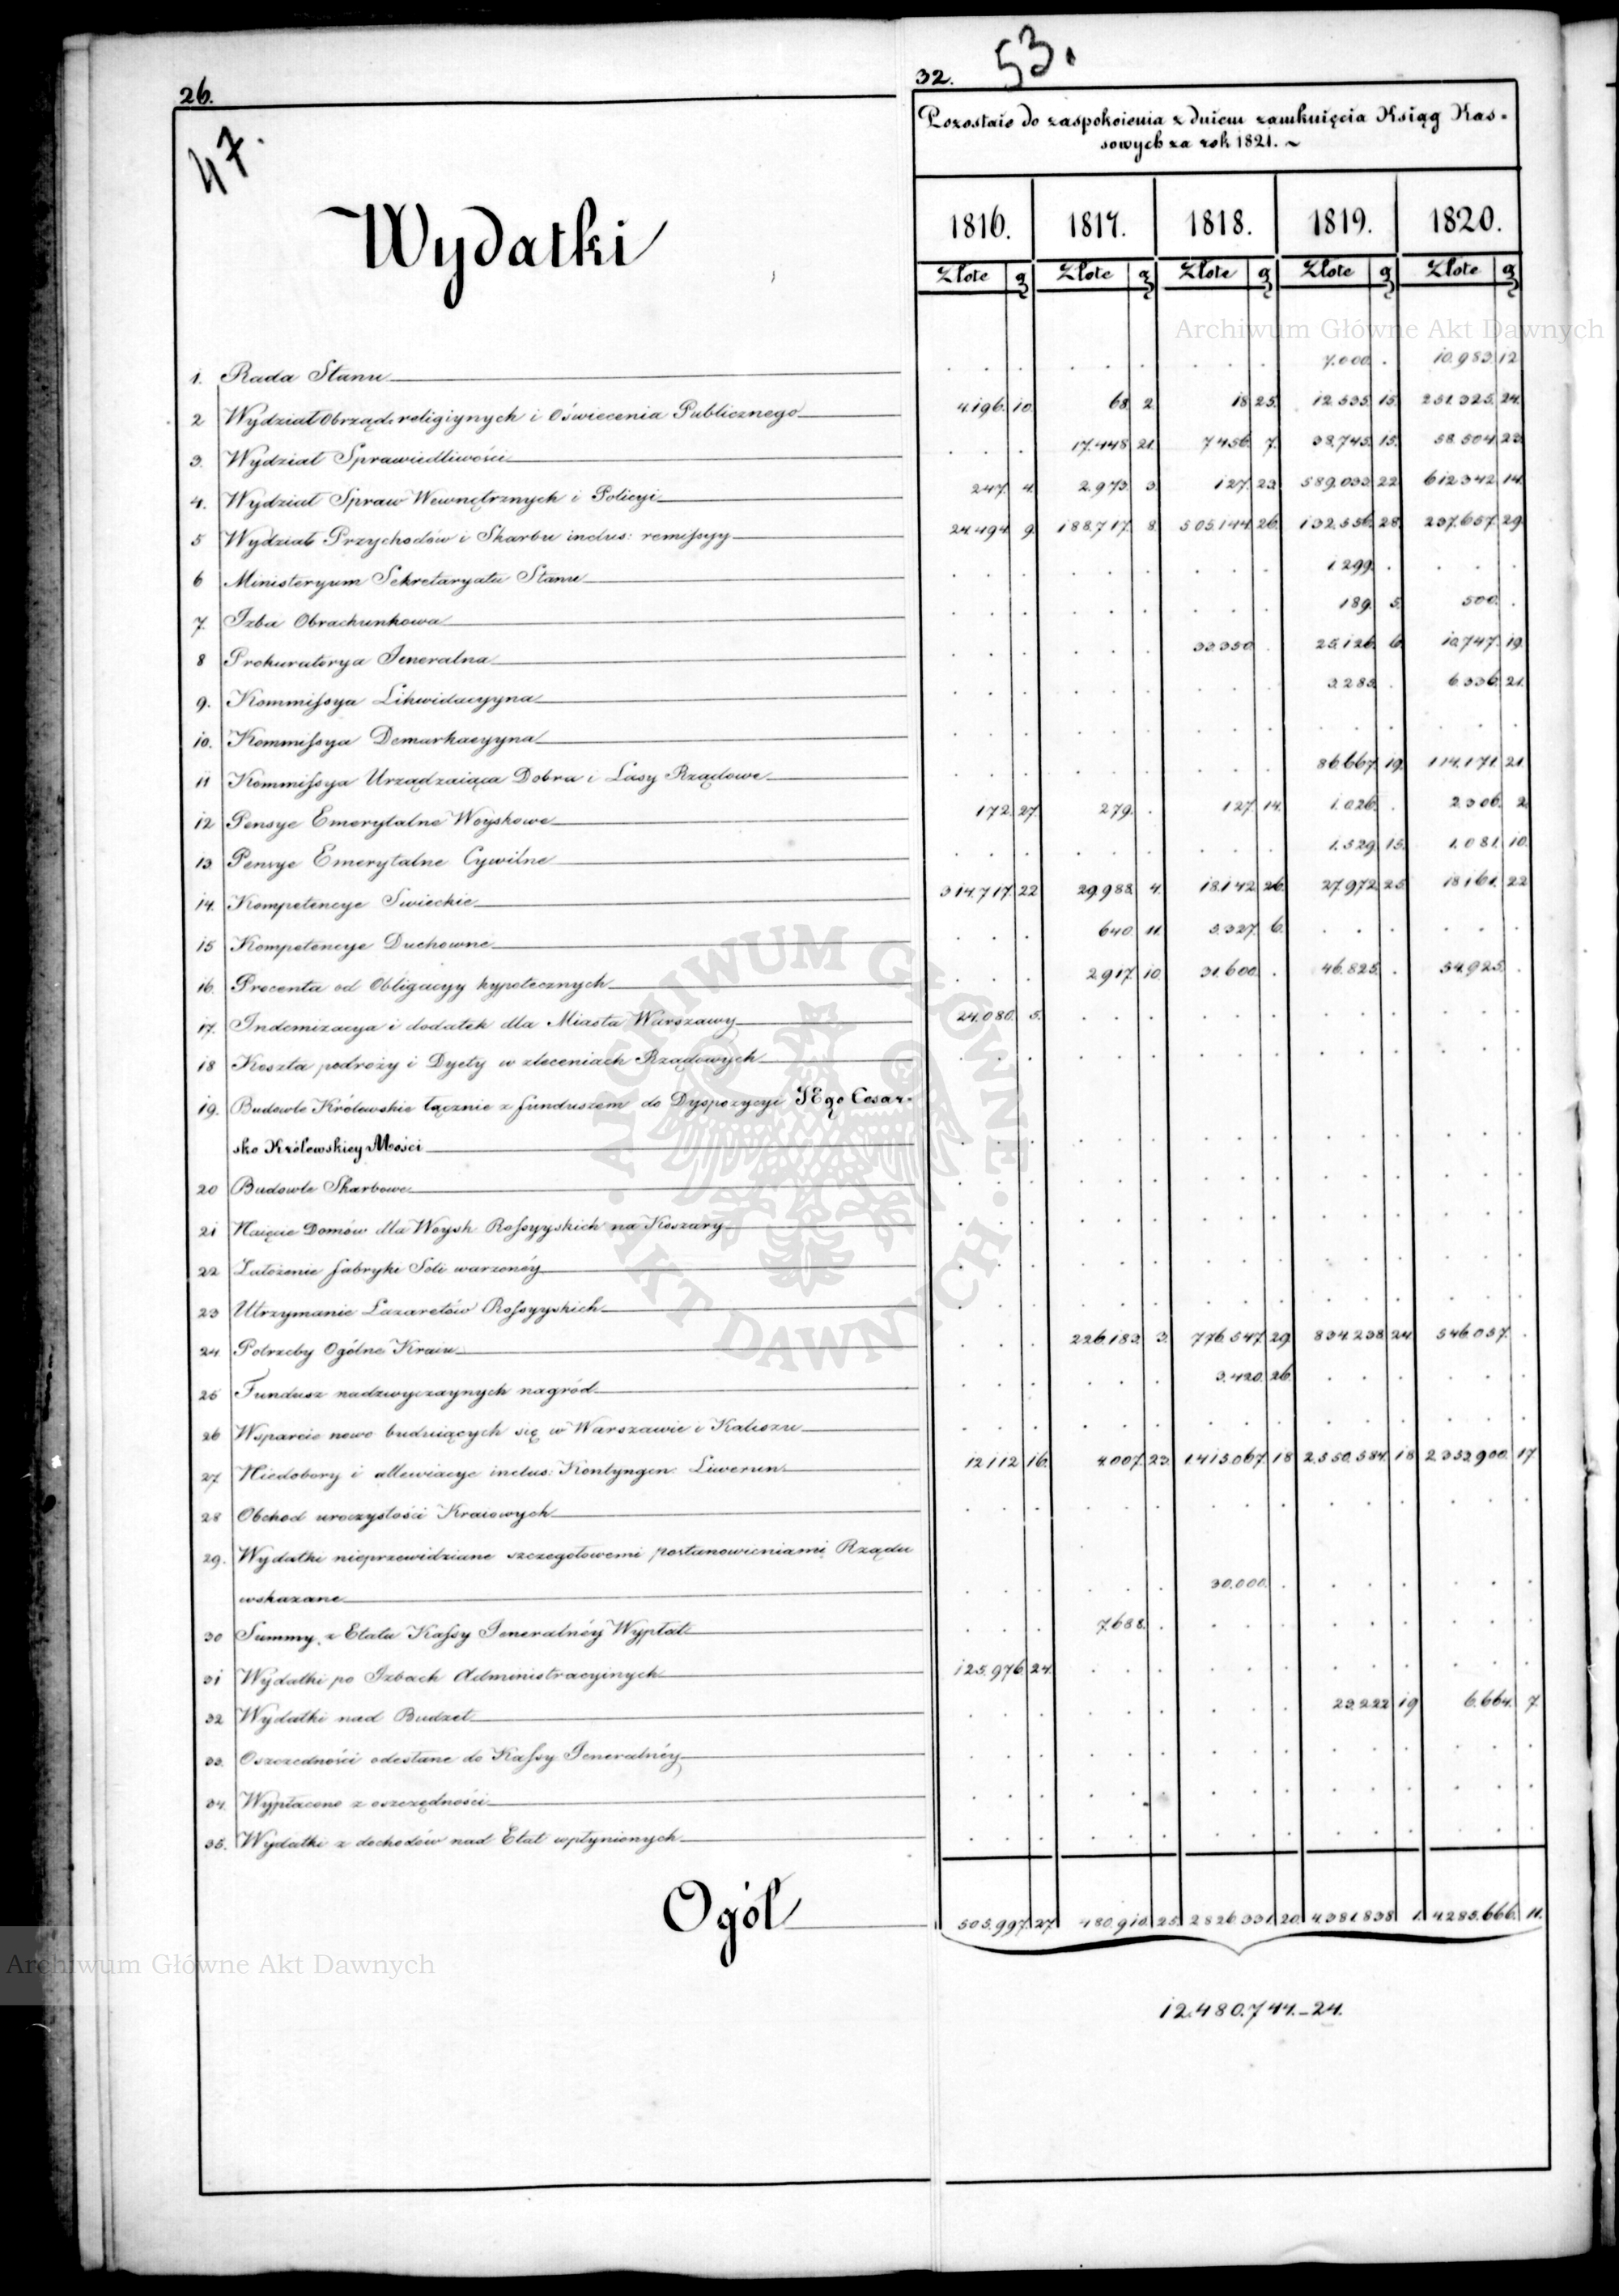 26.
47.
Wydatki
32.
53.
Pozostaie do zaspokoienia z dniem zamknięcia Ksiąg Kas-
sowych za rok 1821.
1816. 1817. 1818. 1819. 1820.
Złote g Złote g Złote g Złote g Złote g
Archiwum Główne Akt Dawnych
1. Rada Stanu . . . . . . . . . 7.000. . 10.983. 12
2 Wydział Obrząd. religiynych i Oświecenia Publicznego 4.196. 10. 68. 2. 18 25. 12.535. 15. 251.325. 24.
3. Wydział Sprawiedliwości . . . 17.448 21. 7.456. 7. 38.745. 15. 58.504 22.
4. Wydział Spraw Wewnętrznych i Policyi 247. 4. 2.973. 3. 127. 23. 589.033. 22 612.342. 14.
5 Wydział Przychodów i Skarbu inclus: remissyy 24.494. 9. 188.717. 8. 505.144. 26. 132.556. 28. 237.657. 29.
6 Ministeryum Sekretaryatu Stanu . . . . . . . . . 1.299. . . . .
7. Izba Obrachunkowa . . . . . . . . . 189. 5. 500. .
8 Prokuratorya Jeneralna . . . . . . 33.350. . 25.126. 6. 10.747. 19.
9. Kommissya Likwidacyyna . . . . . . . . . 3.283. . 6.336. 21.
10. Kommissya Demarkacyyna . . . . . . . . . . . . . . .
11 Kommissya Urządzaiąca Dobra i Lasy Rządowe . . . . . . . . . 86.667. 19. 114.171. 21.
12 Pensye Emerytalne Woyskowe 172. 27. 279. . 127. 14. 1.026. . 2.306. 2.
13 Pensye Emerytalne Cywilne . . . . . . . . . 1.529. 15. 1.081. 10.
14. Kompetencye Swieckie 314.717. 22 29.988. 4. 18.142 26. 27.972. 25. 18.161. 22
15 Kompetencye Duchowne . . . 640. 11. 3.327. 6. . . . . . .
16. Procenta od Obligacyy hypotecznych . . . 2.917. 10. 31.600. . 46.825. . 54.925. .
17. Indemizacya i dodatek dla Miasta Warszawy 24.080. 5. . . . . . . . . . . . .
18 Koszta podroży i Dyety w zleceniach Rządowych . . . . . . . . . . . . . . .
19. Budowle Królewskie łącznie z funduszem do Dyspozycyi JEgo Cesar-
sko Królewskiey Mości . . . . . . . . . . . . . . .
20 Budowle Skarbowe . . . . . . . . . . . . . . .
21 Naięcie Domów dla Woysk Rossyyskich na Koszary . . . . . . . . . . . . . . .
22 Założenie fabryki Soli warzonéy . . . . . . . . . . . . . . .
23 Utrzymanie Lazaretów Rossyyskich . . . . . . . . . . . . . . .
24. Potrzeby Ogólne Kraiu . . . 226.183. 3. 776.547. 29. 834.238. 24 546.057. .
25 Fundusz nadzwyczaynych nagród . . . . . . 3.420. 26. . . . . . .
26 Wsparcie nowo buduiących się w Warszawie i Kaliszu . . . . . . . . . . . . . . .
27 Niedobory i allewiacye inclus: Kontyngen: Liwerun: 12.112 16. 4.007. 23. 1.415.067. 18 2.550.584. 18 2.352.900. 17.
28 Obchod uroczystości Kraiowych . . . . . . . . . . . . . . .
29. Wydatki nieprzewidziane szczegołowemi postanowieniami Rządu
wskazane . . . . . . 30.000. . . . . . . .
30 Summy z Etatu Kassy Jeneralnéy Wypłat . . . 7.688. . . . . . . . . . .
31 Wydatki po Izbach Administracyinych 125.976. 24. . . . . . . . . . . . .
32 Wydatki nad Budżet . . . . . . . . . 23.222 19 6.664. 7.
33. Oszczędności odesłane do Kassy Jeneralnéy . . . . . . . . . . . . . . .
34. Wypłacono z oszczędności . . . . . . . . . . . . . . .
35. Wydatki z dochodów nad Etat wpłynionych . . . . . . . . . . . . . . .
Ogół 505.997. 27. 480.910. 25. 2.826.331. 20. 4.381.838 1. 4.285.666. 11.
12.480.744.–24.
ARCHIWUM GŁÓWNE · AKT DAWNYCH ·
Archiwum Główne Akt Dawnych